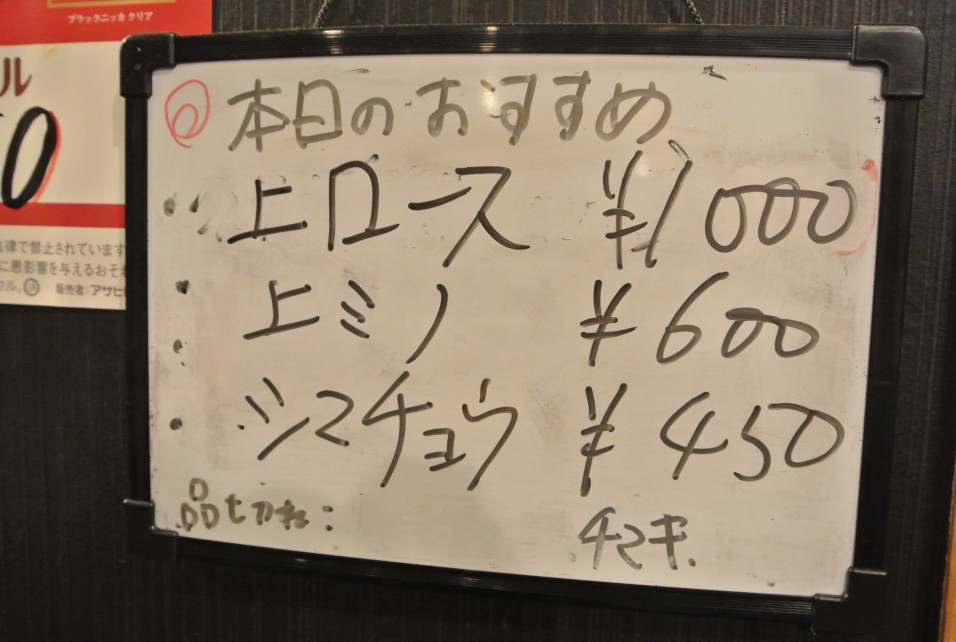 ブラックニッカ クリア
ル
0
法律で禁止されています
に悪影響を与えるおそれ
販売者:アサヒ
本日のおすすめ
・上ロース ¥1000
・上ミノ ¥600
・シマチョウ ¥450
品切れ: チマキ.